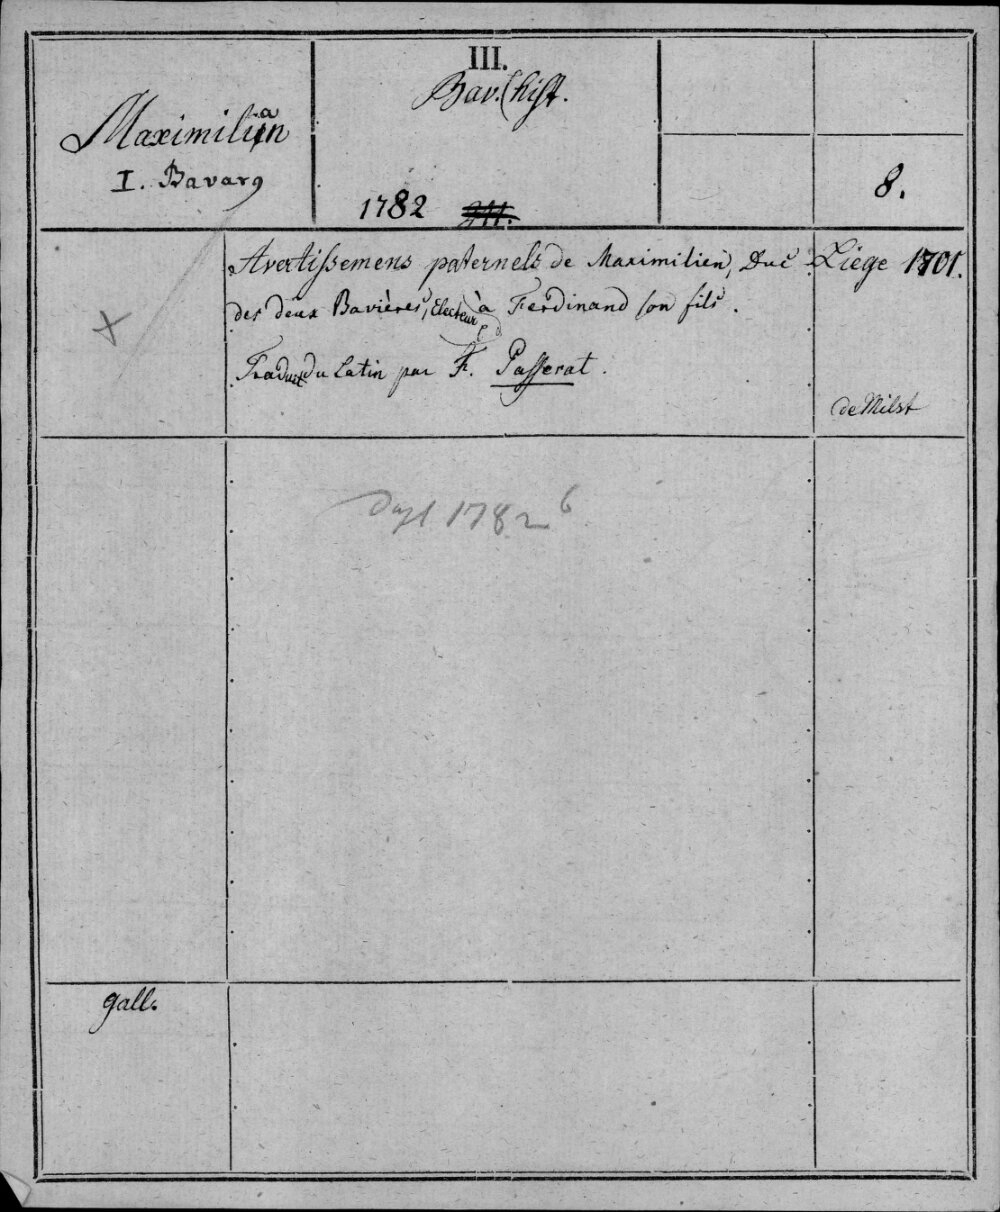 III.
Bav. hist.
Maximilian
I. Bavarg
1782
8.
Avertissemens paternels de Maximilien, Duc
des deux Bavières, Electeur, à Ferdinand son fils.
Traduit du Latin par F. Passerat.
Liege 1701.
de Milst
1782 6
gall.